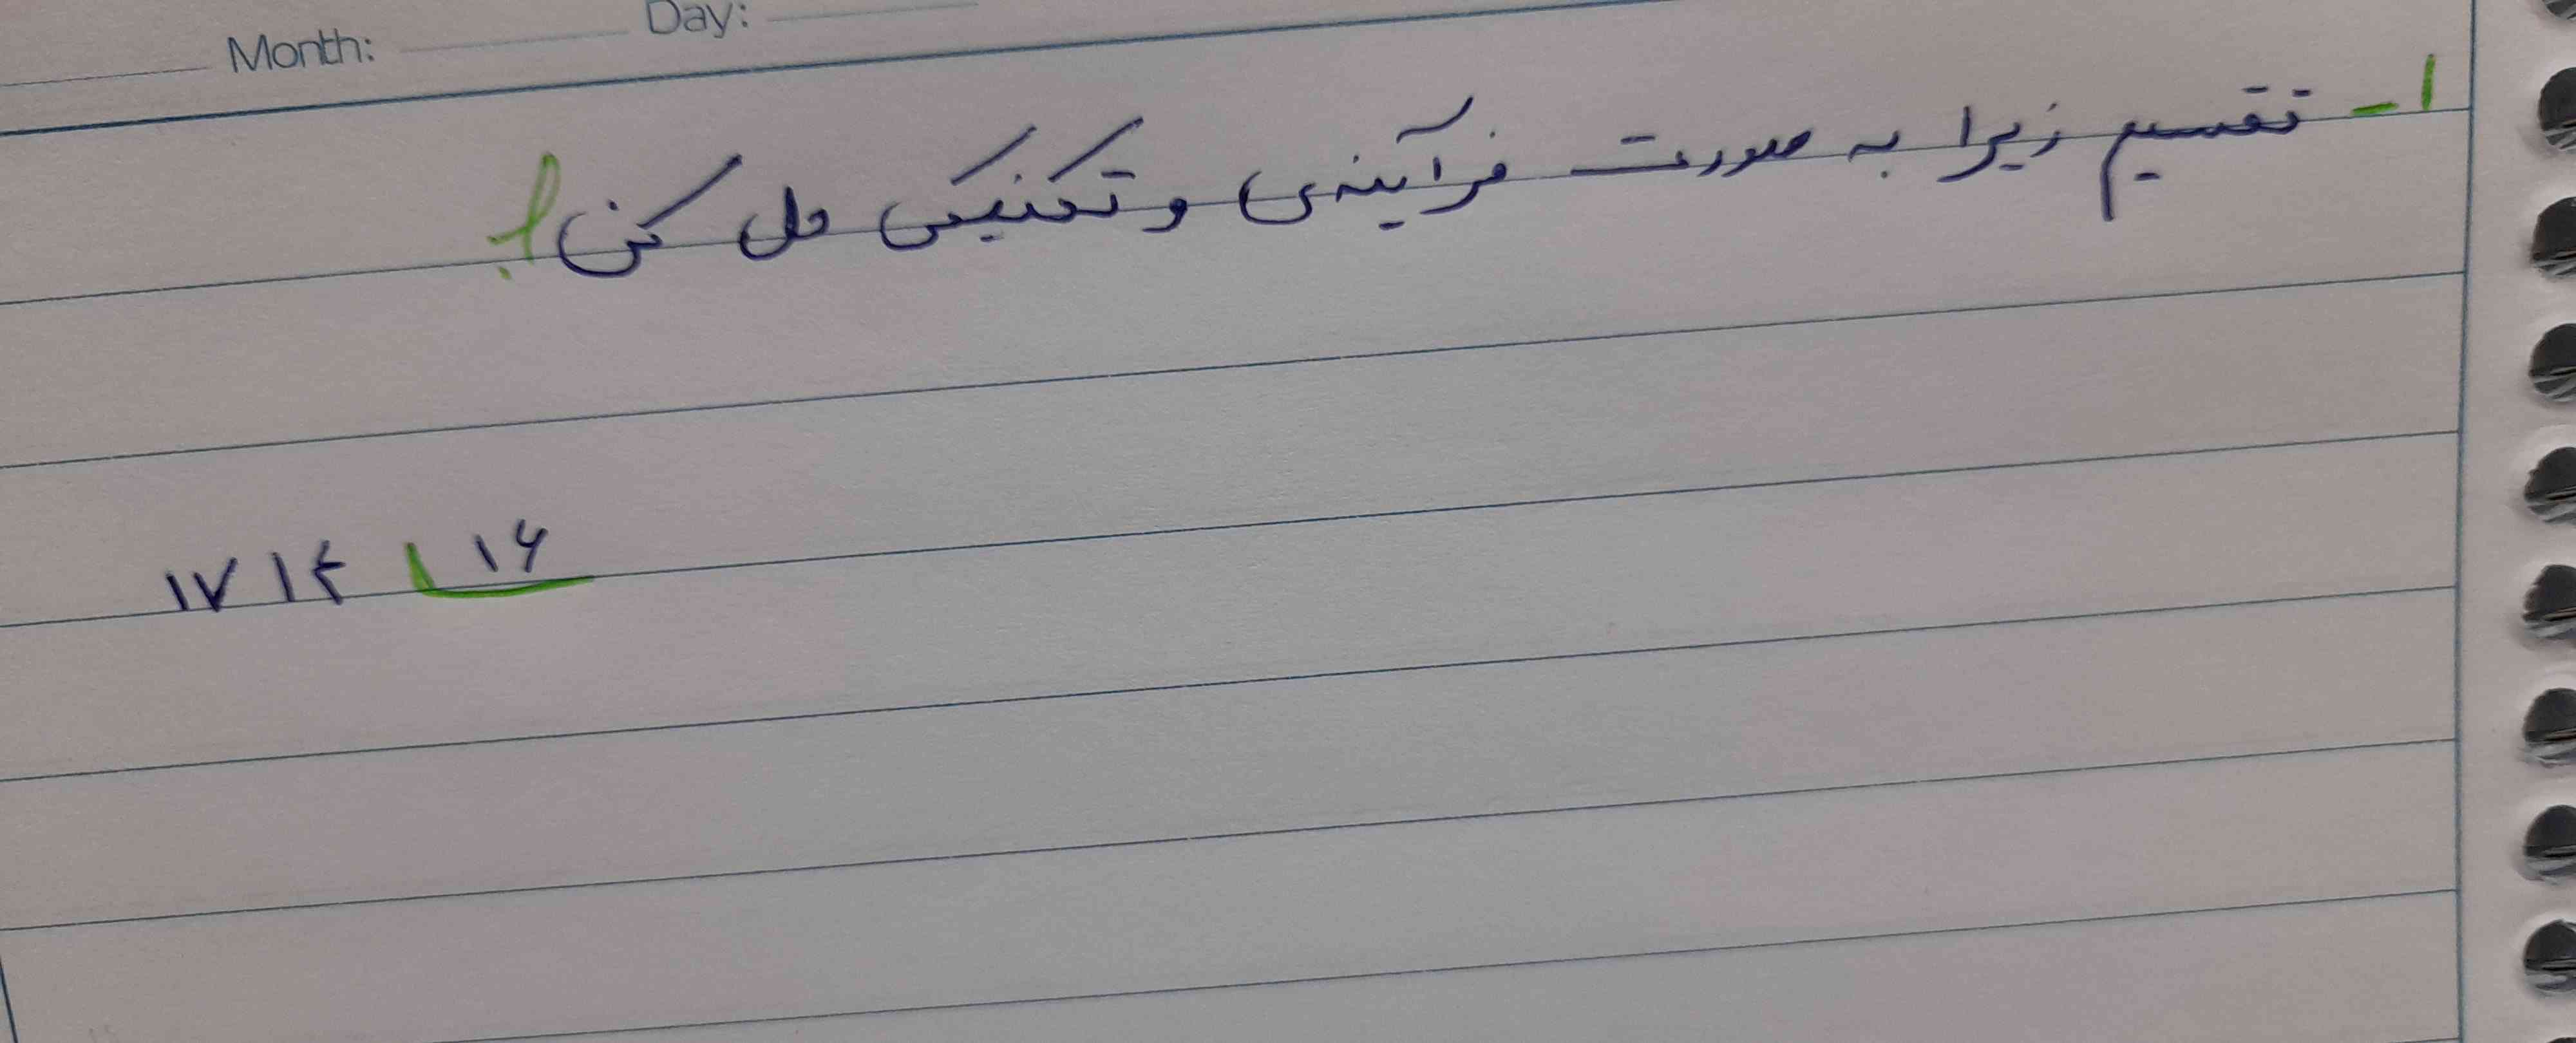 Month: Day:
۱- تقسیم زیرا به صورت فرآیندی و تکنیکی حل کن!
۱۷۱۴ ۱۶